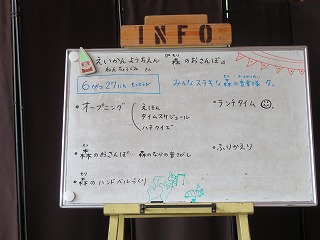 INFO
えいかんようちえん 森のおさんぽ
ねんちょうぐみ さん
6がつ27にち
みんなステキな森の音楽隊 だ。
・オープニング
えほん
タイムスケジュール
ハテクイズ
・ランチタイム
・森のおさんぽ… 森のなかの音さがし
・ふりかえり
・森のハンドベルづくり